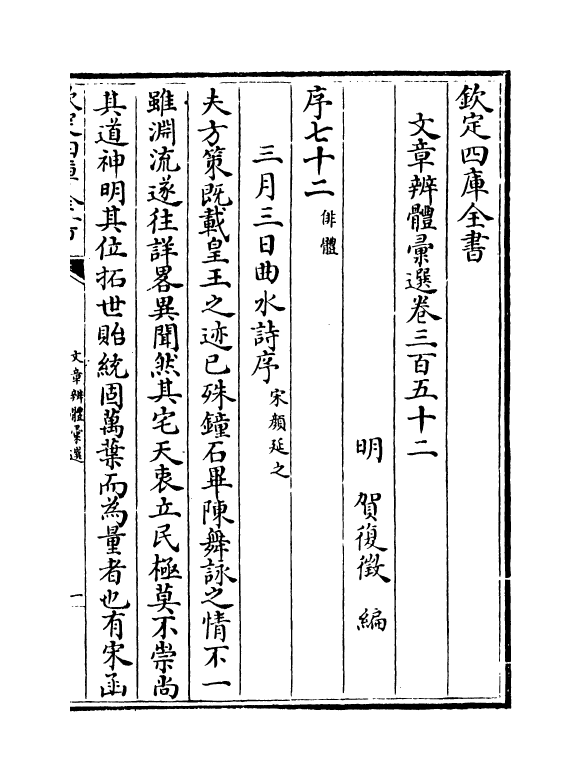 欽定四庫全書
文章辨體彙選卷三百五十二
明 賀復徵 編
序七十二 俳體
三月三日曲水詩序 宋顔延之
夫方策既載皇王之迹已殊鐘石畢陳舞詠之情不一
雖淵流遂往詳畧異聞然其宅天衷立民極莫不崇尚
其道神明其位拓世貽統固萬葉而為量者也有宋函
文章辨體彙選
一